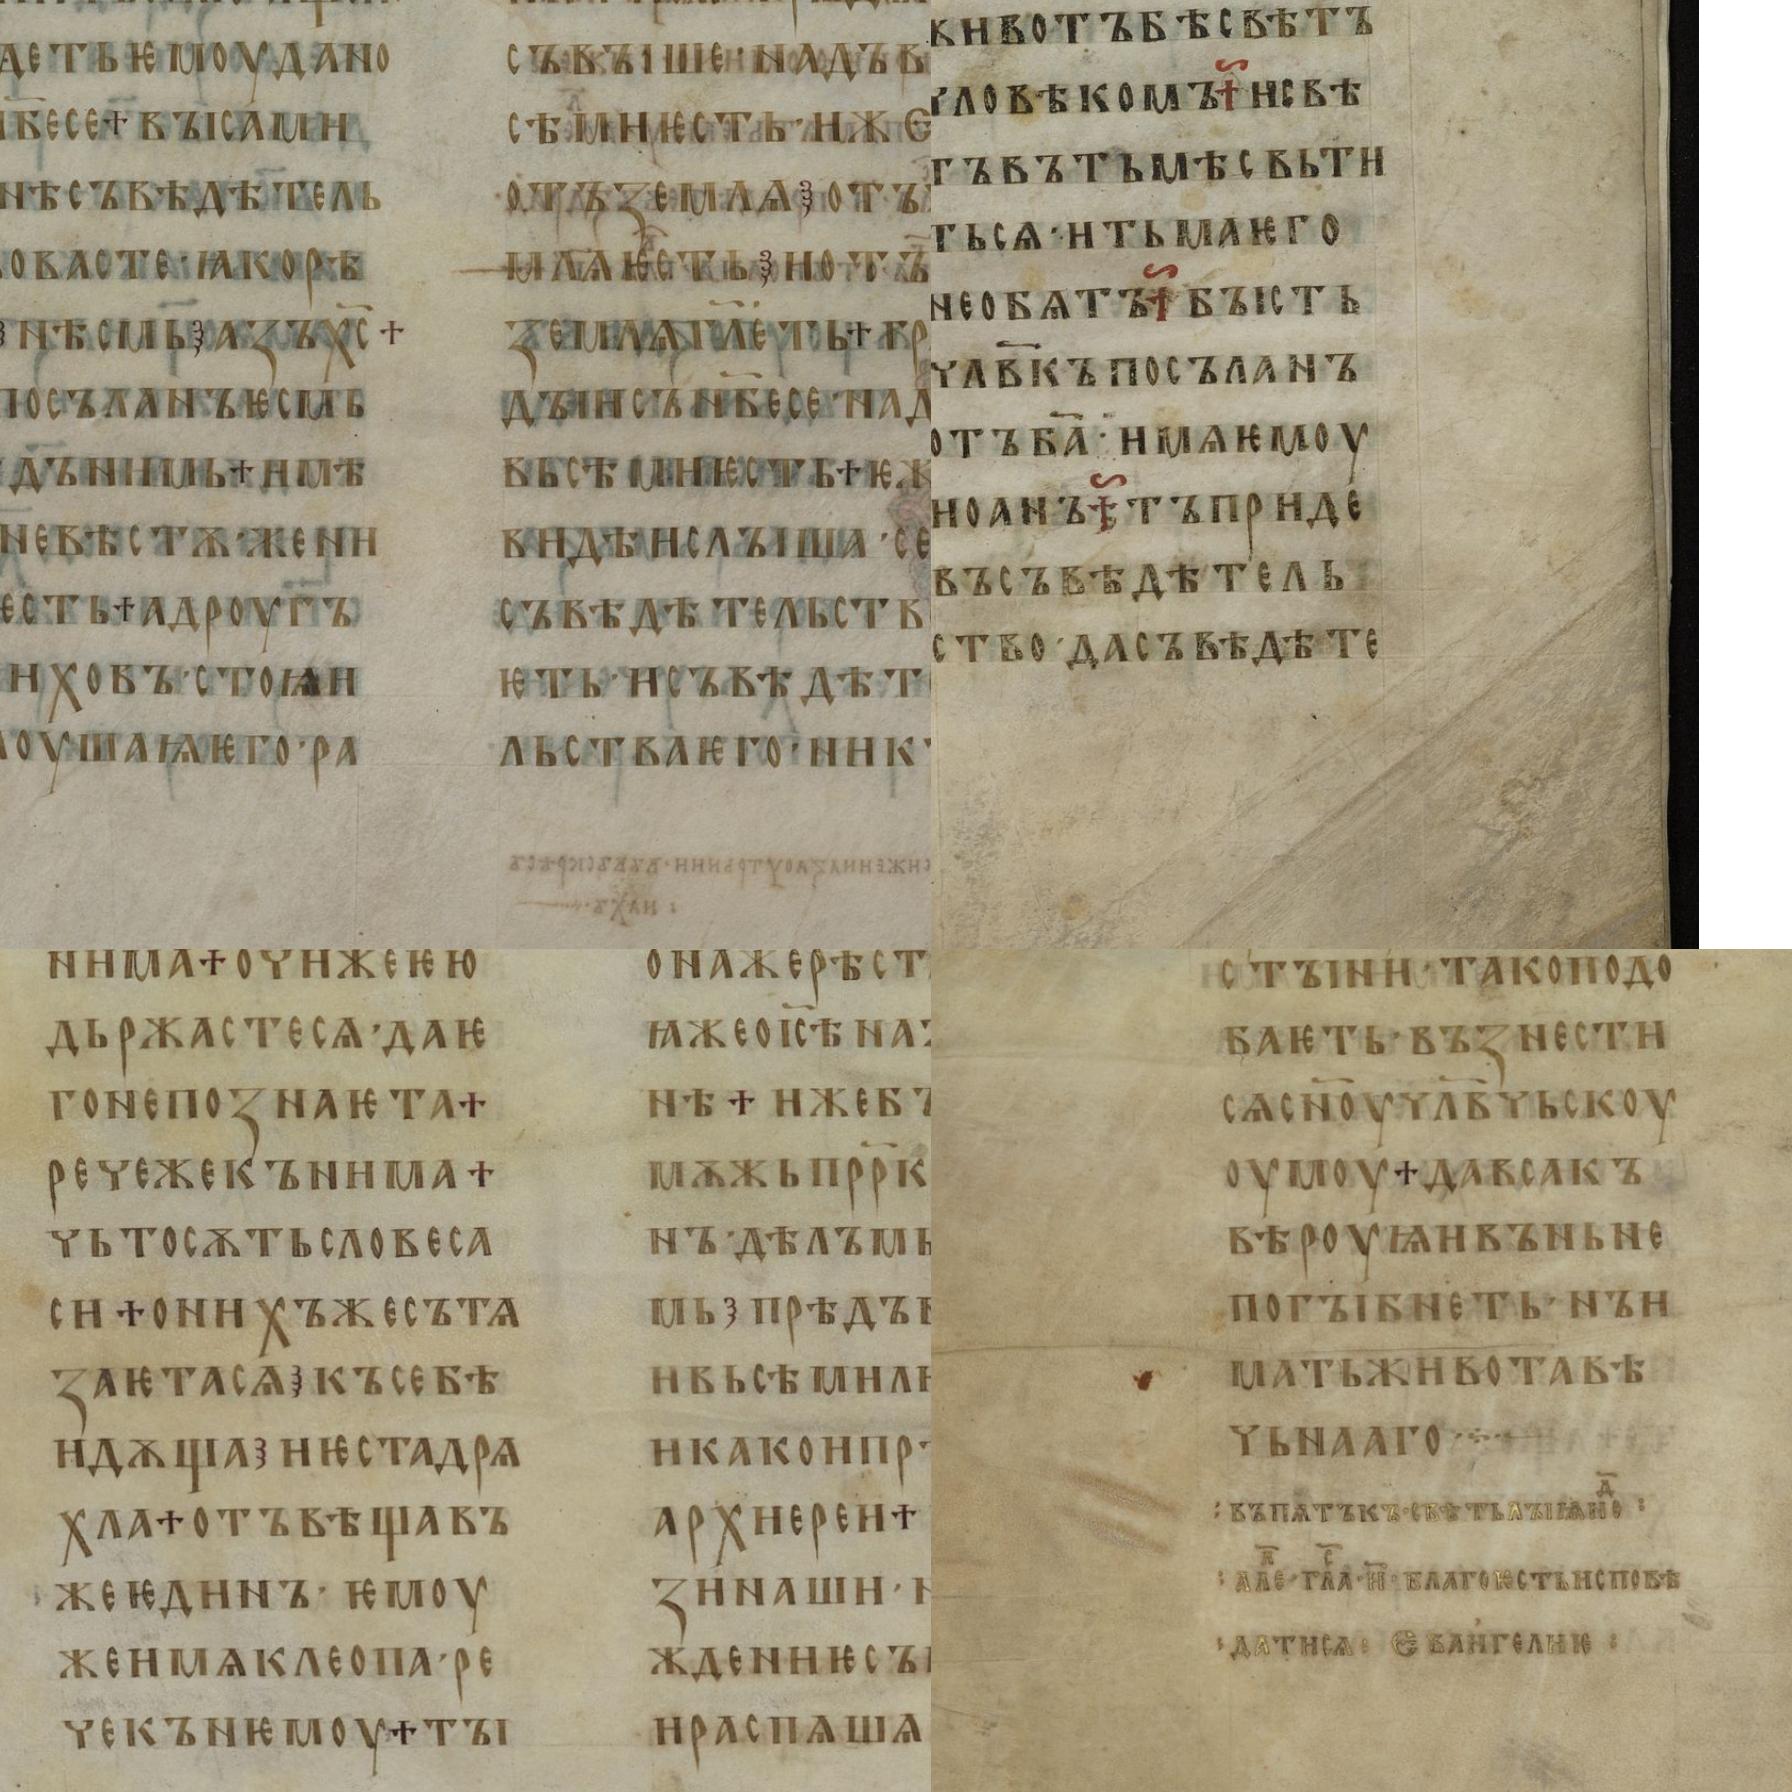 ДЕТЬѤМОУДАНО
Н҃БЕСЕ+ВЪІСАМИ
НѢСЪВѢДѢТЕЛЬ
ОВАСТЕ·ꙖКОРѢ
НѢСМЬ⸾АЗЪХ҃С+
ПОСЪЛАНЪѤСМЬ
ДЪНИМЬ+ИМѢ
НЕВѢСТѪ·ЖЕНИ
ЕСТЬ+АДРОУГЪ
ИХОВЪ·СТОꙖИ
ОУШАꙖѤГО·РА
СЪВЪІШЕ·НАДЪВ
СѢМИѤСТЬ·ИЖЕ
ОТЪЗЕМЛѦ⸾ОТЪ
МЛѦѤСТЬ⸾ИОТЪ
ЗЕМЛѦГЛ҃ЕТЬ+ѦР
ДЪІИСЪН҃БЕСЕ·НАД
ВЬСѢМИѤСТЬ+ѤЖ
ВИДѢИСЛЪІША·СЕ
СЪВѢДѢТЕЛЬСТВ
ѤТЬ·ИСЪВѢДѢТ
ЛЬСТВАѤГО·НИК
ЖИВОТЪБѢСВѢТЪ
ЧЛОВѢКОМЪ+ИСВѢ
ТЪВЪТЬМѢСВЬТИ
ТЬСѦ·ИТЬМАѤГО
НЕОБѦТЪ+БЪІСТЬ
ЧЛВ҃КЪПОСЪЛАНЪ
ОТЪБ҃А·ИМѦѤМОУ
ИОАНЪ+ТЪПРИДЕ
ВЪСЪВѢДѢТЕЛЬ
СТВО·ДАСЪВѢДѢТЕ
НИМА+ОЧИЖЕѤЮ
ДЬРЖАСТЕСѦ·ДАѤ
ГОНЕПОЗНАѤТА+
РЕЧЕЖЕКЪНИМА+
ЧЬТОСѪТЬСЛОВЕСА
СИ+ОНИХЪЖЕСЪТѦ
ЗАѤТАСѦ⸾КЪСЕБѢ
ИДѪЩА⸾ИѤСТАДРѦ
ХЛА+ОТЪВѢЩАВЪ
ЖЕѤДИНЪ·ѤМОУ
ЖЕИМѦКЛЕОПА·РЕ
ЧЕКЪНѤМОУ+ТЪІ
ОНАЖЕРѢСТ
ꙖЖЕОІ҃СѢНАЗ
НѢ+ИЖЕБЪ
МѪЖЬПР҃РК
НЪ·ДѢЛЪМЬ
МЬ⸾ПРѢДЪБ
ИВЬСѢМИЛЮ
ИКАКОИПР
АРХИЕРЕИ+
ЗИНАШИ·Н
ЖДЕНИѤСЪ
ИРАСПѦША
СТЪІНИ·ТАКОПОДО
БАѤТЬ·ВЪЗНЕСТИ
СѦСН҃ОУЧЛ҃ВЧЬСКОУ
ОУМОУ+ДАВСАКЪ
ВѢРОУꙖИВЪНЬНЕ
ПОГЪІБНЕТЬ·НЪИ
МАТЬЖИВОТАВѢ
ЧЬНААГО
:ВЪПѦТЪКЪ·СВѢТЬЛЪІꙖНⷣО:
:АЛⷧЕ·ГЛⷭА·И҃·БЛАГОѤСТЬИСПОВѢ
:ДАТИСѦ: ЄВАНГЕЛИѤ: